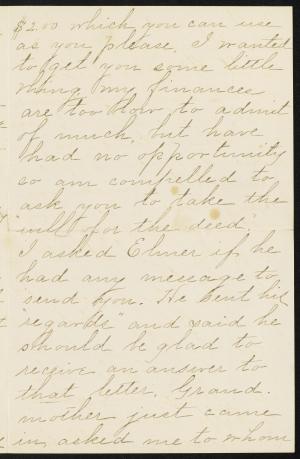 $2.00 which you can use
as you please. I wanted
to get you some little
thing, my finances
are too low to admit
of much, but have
had no opportunity
so am compelled to
ask you to take the
"will for the deed."
I asked Elmer if he
had any message to
send you. He sent his
"regards" and said he
should be glad to
receive an answer to
that letter. Grand-
mother just came
in, asked me to whom